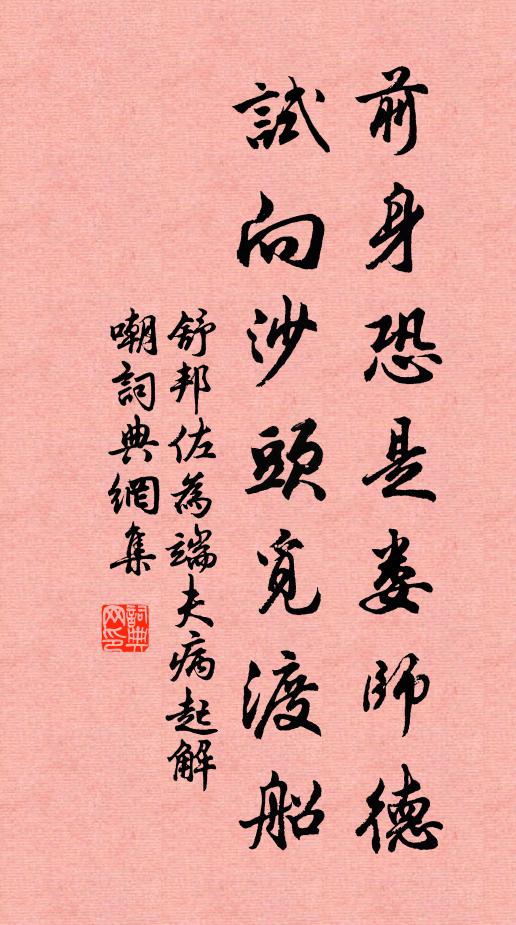 前身恐是娄師德
試向沙頭覓渡船
舒邦佐為端夫病起解
嘲詞典網集
詞典
网印